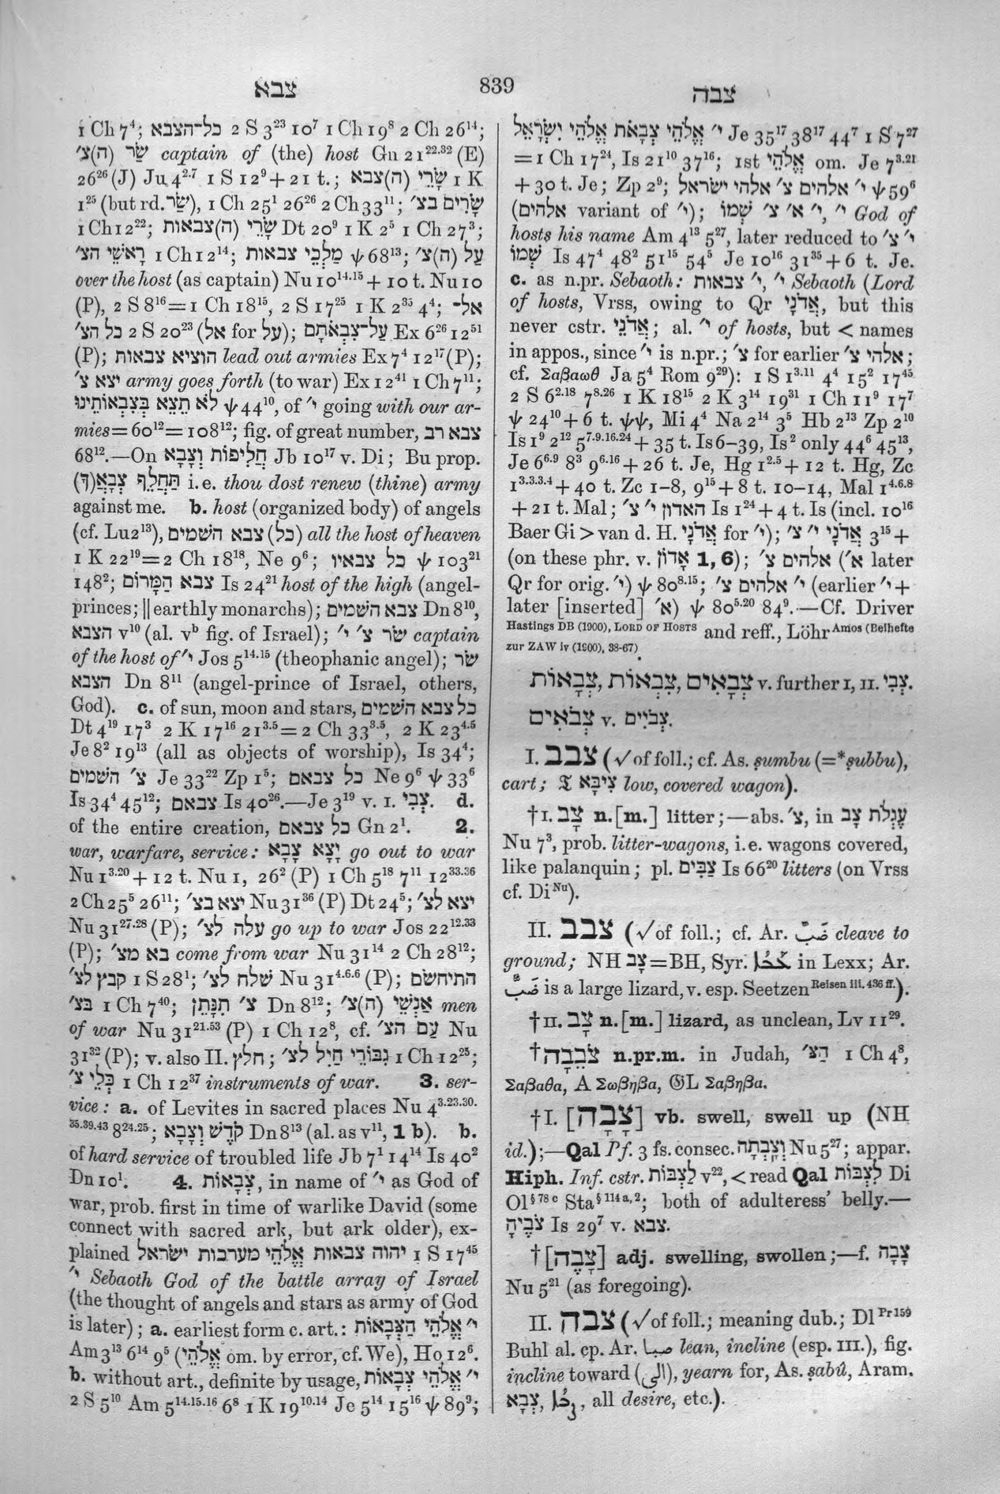 צבא
839
צבה
1 Ch 7⁴; כל־הצבא 2 S 3²³ 10⁷ 1 Ch 19⁸ 2 Ch 26¹⁴;
שׂר (ה)צ׳ captain of (the) host Gn 21²²·³² (E)
26²⁶ (J) Ju 4²·⁷ 1 S 12⁹ + 21 t.; שָׂרֵי (ה)צבא 1 K
1²⁵ (but rd. שַׂר׳), 1 Ch 25¹ 26²⁶ 2 Ch 33¹¹; שָׂרִים בצ׳
1 Ch 12²²; שָׂרֵי (ה)צבאות Dt 20⁹ 1 K 2⁵ 1 Ch 27³;
רָאשֵׁי הצ׳ 1 Ch 12¹⁴; מַלְכֵי צבאות ψ 68¹³; עַל (ה)צ׳
over the host (as captain) Nu 10¹⁴·¹⁵ + 10 t. Nu 10
(P), 2 S 8¹⁶ = 1 Ch 18¹⁵, 2 S 17²⁵ 1 K 2³⁵ 4⁴; אל־
כל הצ׳ 2 S 20²³ (אל for על); עַל־צִבְאֹתָם Ex 6²⁶ 12⁵¹
(P); הוציא צבאות lead out armies Ex 7⁴ 12¹⁷ (P);
יצא צ׳ army goes forth (to war) Ex 12⁴¹ 1 Ch 7¹¹;
לֹא תֵצֵא בְּצִבְאוֹתֵינוּ ψ 44¹⁰, of י׳ going with our ar-
mies = 60¹² = 108¹²; fig. of great number, צבא רב
68¹².—On חֲלִיפוֹת וְצָבָא Jb 10¹⁷ v. Di; Bu prop.
תַּחֲלֵף צְבָאֲ(ךָ) i.e. thou dost renew (thine) army
against me. b. host (organized body) of angels
(cf. Lu 2¹³), (כל) צבא השמים all the host of heaven
1 K 22¹⁹ = 2 Ch 18¹⁸, Ne 9⁶; כל צבאיו ψ 103²¹
148²; צבא הַמָּרוֹם Is 24²¹ host of the high (angel-
princes; ‖ earthly monarchs); צבא השמים Dn 8¹⁰,
הצבא v¹⁰ (al. vᵇ fig. of Israel); שׂר צ׳ י׳ captain
of the host of י׳ Jos 5¹⁴·¹⁵ (theophanic angel); שׂר
הצבא Dn 8¹¹ (angel-prince of Israel, others,
God). c. of sun, moon and stars, כל צבא השמים
Dt 4¹⁹ 17³ 2 K 17¹⁶ 21³·⁵ = 2 Ch 33³·⁵, 2 K 23⁴·⁵
Je 8² 19¹³ (all as objects of worship), Is 34⁴;
צ׳ השמים Je 33²² Zp 1⁵; כל צבאם Ne 9⁶ ψ 33⁶
Is 34⁴ 45¹²; צבאם Is 40²⁶.—Je 3¹⁹ v. I. צְבִי. d.
of the entire creation, כל צבאם Gn 2¹. 2.
war, warfare, service: יָצָא צָבָא go out to war
Nu 1³·²⁰ + 12 t. Nu 1, 26² (P) 1 Ch 5¹⁸ 7¹¹ 12³³·³⁶
2 Ch 25⁵ 26¹¹; יצא בצ׳ Nu 31³⁶ (P) Dt 24⁵; יצא לצ׳
Nu 31²⁷·²⁸ (P); עלה לצ׳ go up to war Jos 22¹²·³³
(P); בא מצ׳ come from war Nu 31¹⁴ 2 Ch 28¹²;
קבץ לצ׳ 1 S 28¹; שלח לצ׳ Nu 31⁴·⁶·⁶ (P); התיחשׂם
בצ׳ 1 Ch 7⁴⁰; צ׳ תִּנָּתֵן Dn 8¹²; אַנְשֵׁי (ה)צ׳ men
of war Nu 31²¹·⁵³ (P) 1 Ch 12⁸, cf. עַם הצ׳ Nu
31³² (P); v. also II. חלץ; גִּבּוֹרֵי חַיִל לצ׳ 1 Ch 12²⁵;
כְּלֵי צ׳ 1 Ch 12³⁷ instruments of war. 3. ser-
vice: a. of Levites in sacred places Nu 4³·²³·³⁰·
³⁵·³⁹·⁴³ 8²⁴·²⁵; קֹדֶשׁ וְצָבָא Dn 8¹³ (al. as v¹¹, 1 b). b.
of hard service of troubled life Jb 7¹ 14¹⁴ Is 40²
Dn 10¹. 4. צְבָאוֹת, in name of י׳ as God of
war, prob. first in time of warlike David (some
connect with sacred ark, but ark older), ex-
plained יהוה צבאות אֱלֹהֵי מערכות ישראל 1 S 17⁴⁵
י׳ Sebaoth God of the battle array of Israel
(the thought of angels and stars as army of God
is later); a. earliest form c. art.: י׳ אֱלֹהֵי הַצְּבָאוֹת
Am 3¹³ 6¹⁴ 9⁵ (אֱלֹהֵי om. by error, cf. We), Ho 12⁶.
b. without art., definite by usage, י׳ אֱלֹהֵי צְבָאוֹת
2 S 5¹⁰ Am 5¹⁴·¹⁵·¹⁶ 6⁸ 1 K 19¹⁰·¹⁴ Je 5¹⁴ 15¹⁶ ψ 89⁹;
י׳ אֱלֹהֵי צְבָאֹת אֱלֹהֵי יִשְׂרָאֵל Je 35¹⁷ 38¹⁷ 44⁷ 1 S 7²⁷
= 1 Ch 17²⁴, Is 21¹⁰ 37¹⁶; 1st אֱלֹהֵי om. Je 7³·²¹
+ 30 t. Je; Zp 2⁹; י׳ אלהים צ׳ אלהי ישראל ψ 59⁶
(אלהים variant of י׳); י׳, י׳ א׳ צ׳ שְׁמוֹ God of
hosts his name Am 4¹³ 5²⁷, later reduced to י׳ צ׳
שְׁמוֹ Is 47⁴ 48² 51¹⁵ 54⁵ Je 10¹⁶ 31³⁵ + 6 t. Je.
c. as n.pr. Sebaoth: י׳ צבאות, י׳ Sebaoth (Lord
of hosts, Vrss, owing to Qr אֲדֹנָי, but this
never cstr. אֲדֹנֵי; al. י׳ of hosts, but < names
in appos., since י׳ is n.pr.; צ׳ for earlier אלהי צ׳;
cf. Σαβαωθ Ja 5⁴ Rom 9²⁹): 1 S 1³·¹¹ 4⁴ 15² 17⁴⁵
2 S 6²·¹⁸ 7⁸·²⁶ 1 K 18¹⁵ 2 K 3¹⁴ 19³¹ 1 Ch 11⁹ 17⁷
ψ 24¹⁰ + 6 t. ψψ, Mi 4⁴ Na 2¹⁴ 3⁵ Hb 2¹³ Zp 2¹⁰
Is 1⁹ 2¹² 5⁷·⁹·¹⁶·²⁴ + 35 t. Is 6–39, Is² only 44⁶ 45¹³,
Je 6⁶·⁹ 8³ 9⁶·¹⁶ + 26 t. Je, Hg 1²·⁵ + 12 t. Hg, Zc
1³·³·³·⁴ + 40 t. Zc 1–8, 9¹⁵ + 8 t. 10–14, Mal 1⁴·⁶·⁸
+ 21 t. Mal; האדון י׳ צ׳ Is 1²⁴ + 4 t. Is (incl. 10¹⁶
Baer Gi > van d. H. אֲדֹנָי for י׳); אֲדֹנָי י׳ צ׳ 3¹⁵ +
(on these phr. v. אָדוֹן 1, 6); אלהים צ׳ (א׳ later
Qr for orig. י׳) ψ 80⁸·¹⁵; י׳ אלהים צ׳ (earlier י׳ +
later [inserted] א׳) ψ 80⁵·²⁰ 84⁹.—Cf. Driver
Hastings DB (1900), LORD OF HOSTS and reff., Löhr Amos (Beihefte
zur ZAW iv (1900), 38-67).
צְבָאִים, צִבְאוֹת, צְבָאוֹת v. further I, II. צְבִי.
צְבֹאִים v. צְבֹיִים.
I. צבב (√ of foll.; cf. As. ṣumbu (= *ṣubbu),
cart; 𝔗 צִיבָּא low, covered wagon).
†I. צָב n.[m.] litter;—abs. צ׳, in עֶגְלֹת צָב
Nu 7³, prob. litter-wagons, i.e. wagons covered,
like palanquin; pl. צַבִּים Is 66²⁰ litters (on Vrss
cf. Di Nu).
II. צבב (√ of foll.; cf. Ar. ضَبَّ cleave to
ground; NH צָב = BH, Syr. in Lexx; Ar.
ضَبٌّ is a large lizard, v. esp. Seetzen Reisen iii. 436 ff.).
†II. צָב n.[m.] lizard, as unclean, Lv 11²⁹.
†צֹבֵבָה n.pr.m. in Judah, הַצּ׳ 1 Ch 4⁸,
Σαβαθα, A Σωβηβα, 𝔊L Σαβηβα.
†I. [צָבָה] vb. swell, swell up (NH
id.);—Qal Pf. 3 fs. consec. וְצָבְתָה Nu 5²⁷; appar.
Hiph. Inf. cstr. לַצְבּוֹת v²², < read Qal לִצְבּוֹת Di
Ol § 78 c Sta § 114 a, 2; both of adulteress’ belly.—
צֹבֶיהָ Is 29⁷ v. צבא.
†[צָבֶה] adj. swelling, swollen;—f. צָבָה
Nu 5²¹ (as foregoing).
II. צבה (√ of foll.; meaning dub.; Dl Pr 159
Buhl al. cp. Ar. صبا lean, incline (esp. III.), fig.
incline toward (الى), yearn for, As. ṣabû, Aram.
צְבָא, , all desire, etc.).